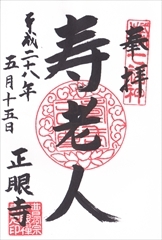 奉拝
寿老人
平成二十八年
五月十五日
正眼寺